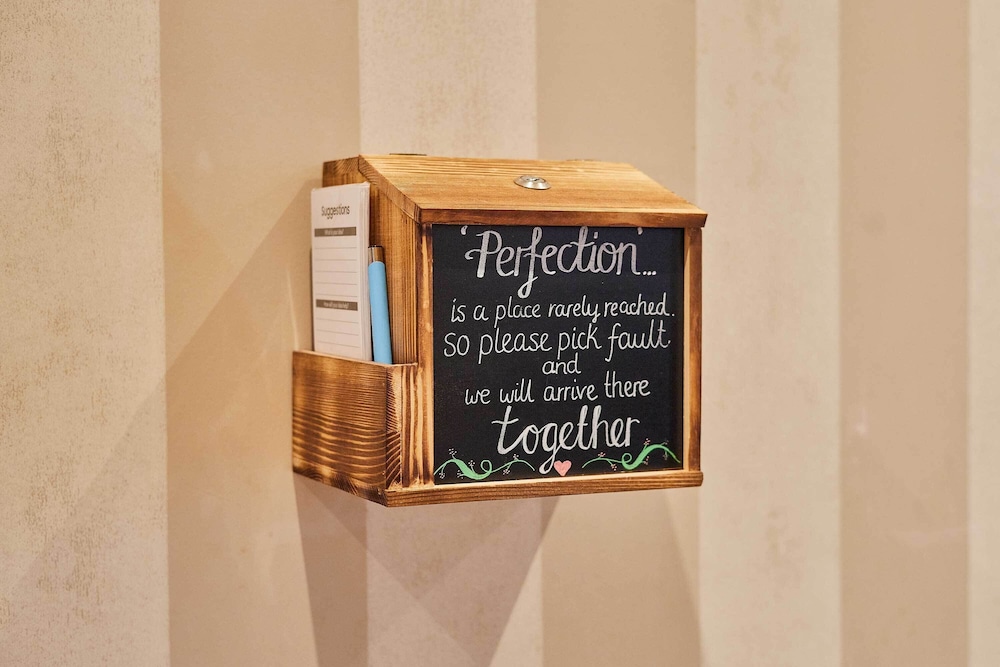 Suggestions
'Perfection'...
is a place rarely reached.
so please pick fault
and
we will arrive there
together